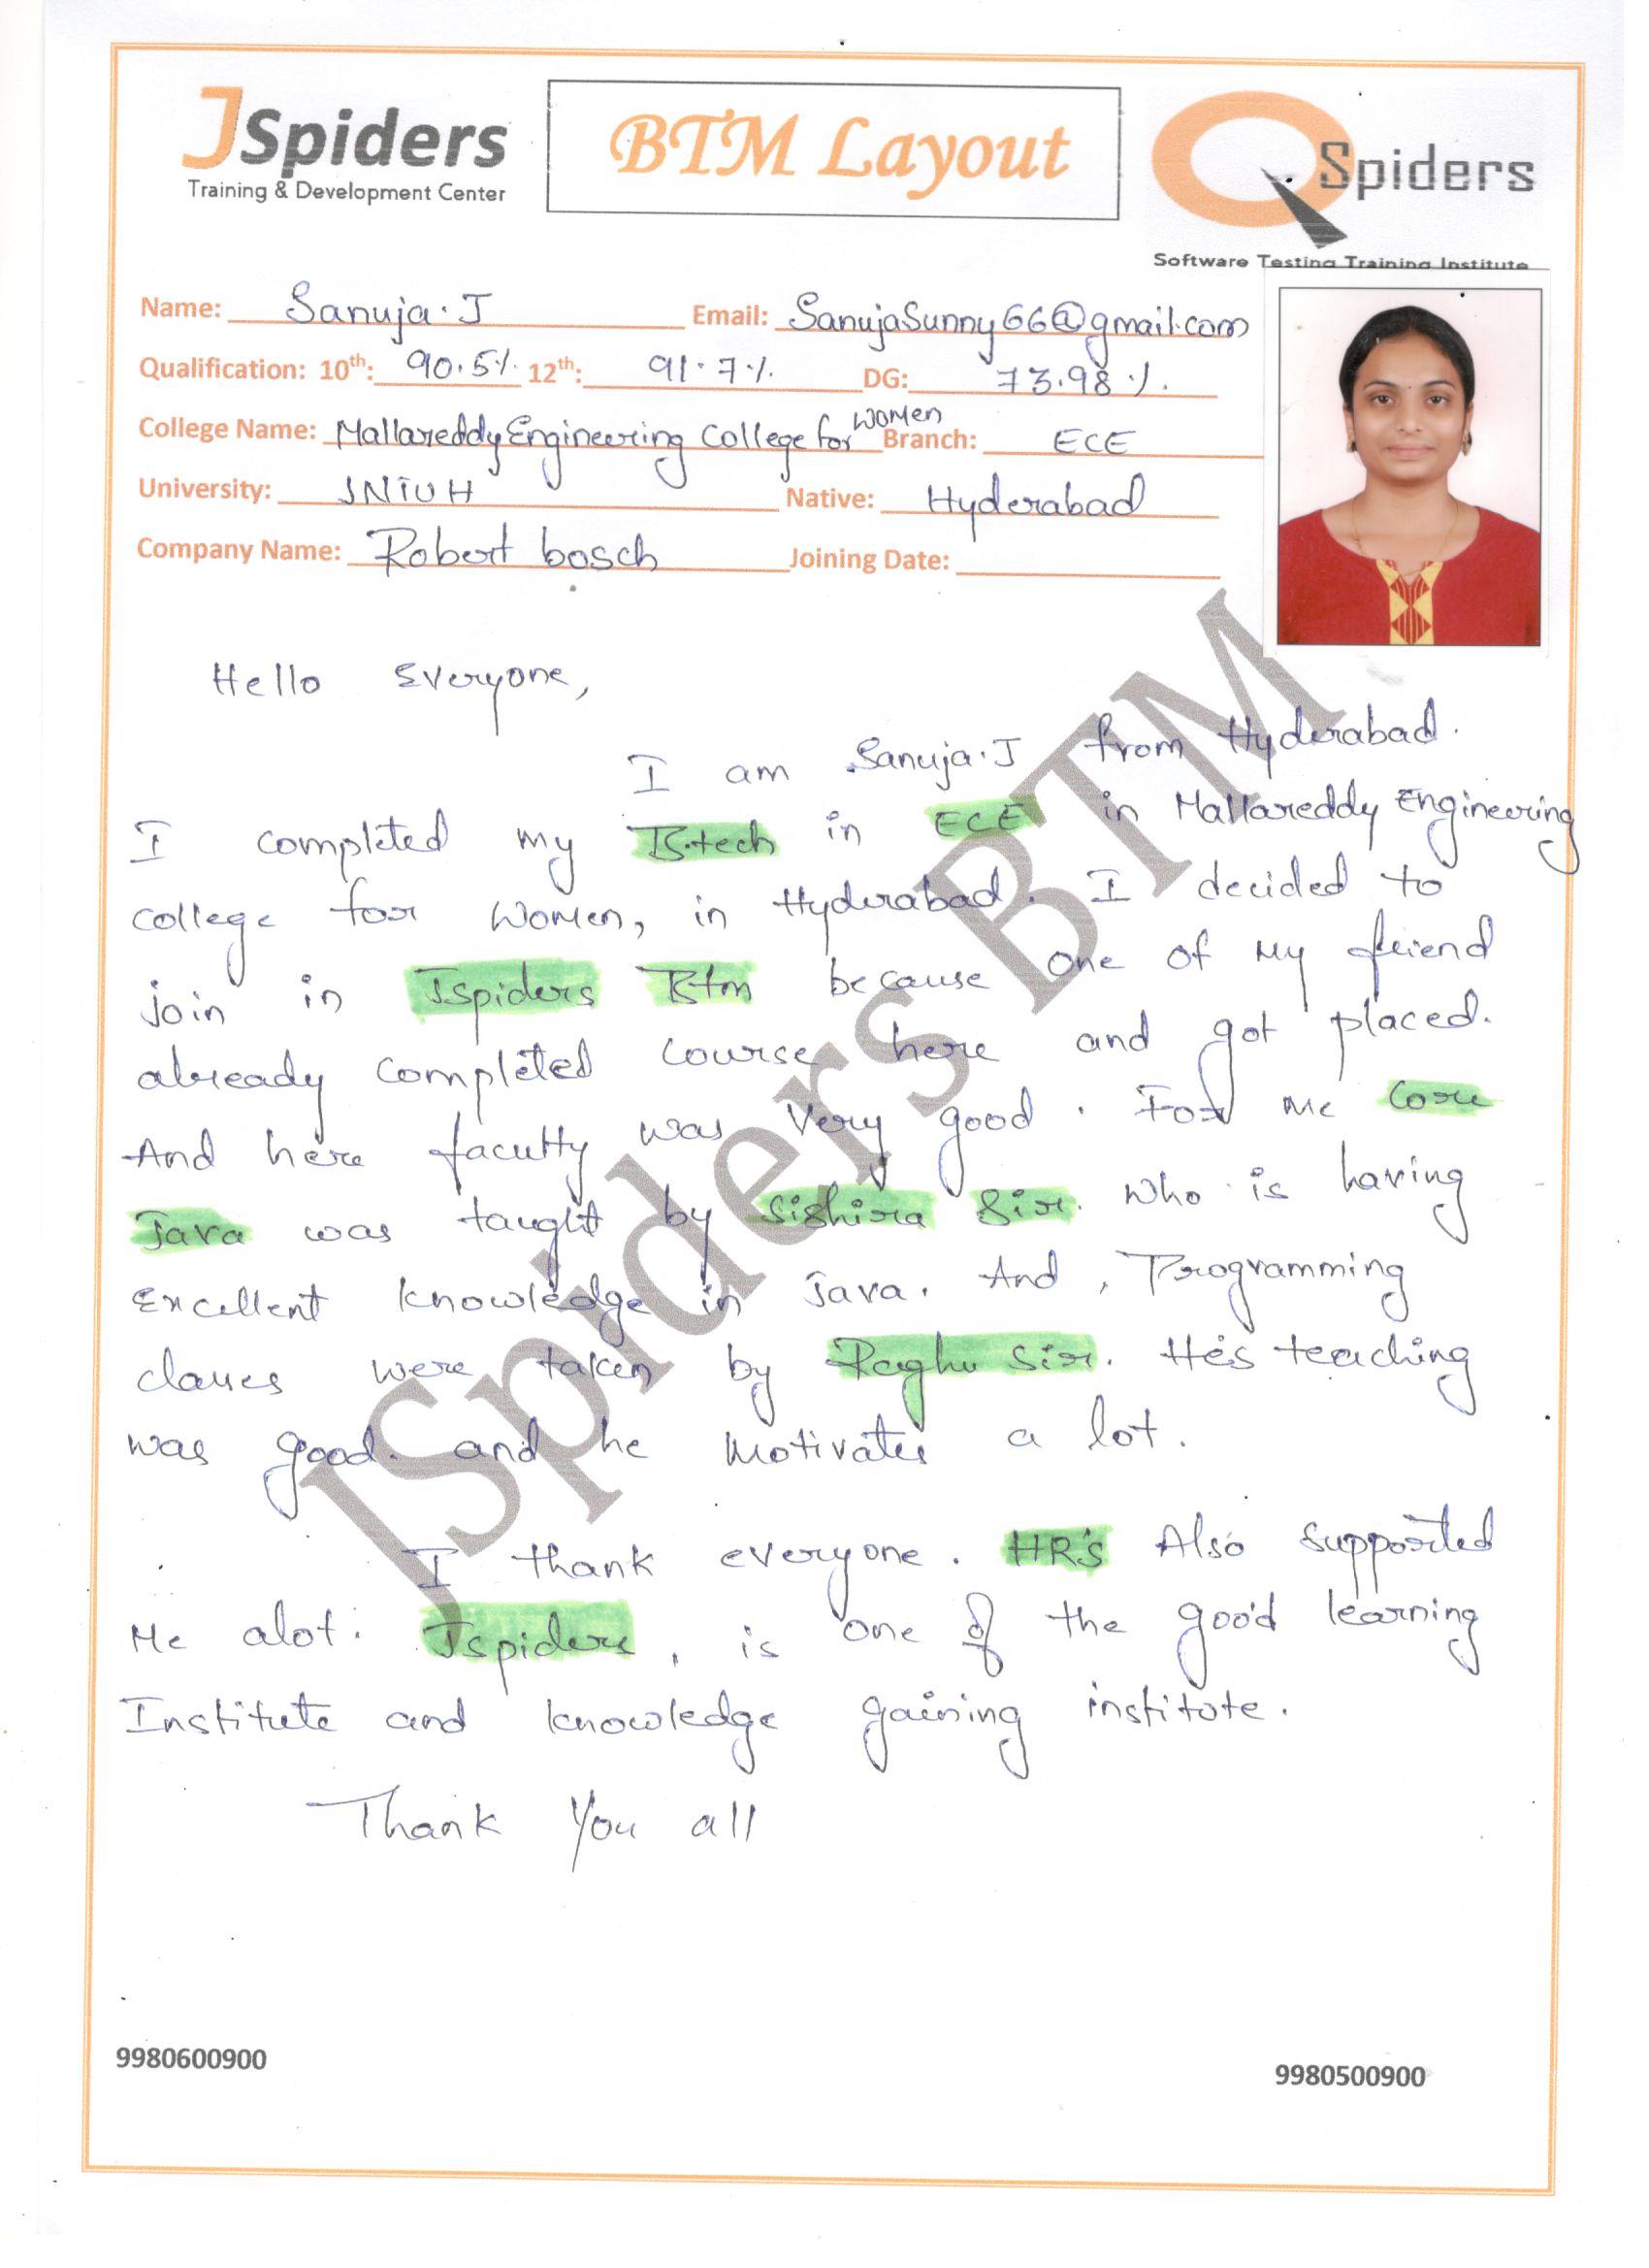 JSpiders
Training & Development Center
BTM Layout
QSpiders
Software Testing Training Institute
Name: Sanuja.J Email: SanujaSunny66@gmail.com
Qualification: 10th: 90.5% 12th: 91.7% DG: 73.98%.
College Name: Mallareddy Engineering College for Women Branch: ECE
University: JNTUH Native: Hyderabad
Company Name: Robert bosch Joining Date:
Hello Everyone,
I am Sanuja.J from Hyderabad.
I completed my B.tech in ECE in Mallareddy Engineering
college for Women, in Hyderabad. I decided to
join in Jspiders Btm because one of my friend
already completed course here and got placed.
And here faculty was very good. For me Core
Java was taught by Sishira Sir. Who is having
Excellent knowledge in Java. And, Programming
classes were taken by Raghu Sir. He's teaching
was good. and he motivates a lot.
I thank everyone. HR's Also supported
Me alot. Jspiders, is one of the good learning
Institute and knowledge gaining institute.
Thank You all
JSpiders BTM
9980600900
9980500900